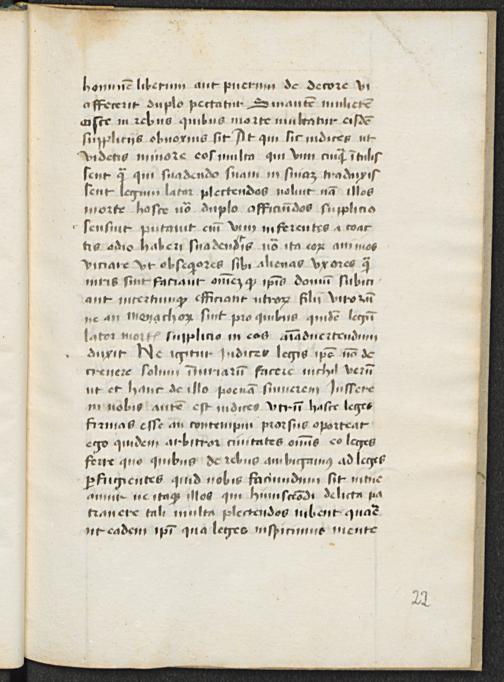 hominē liberum aut puerum de decore vi
affecerit duplo pectatur Sinautē mulierē
oīsce in rebus quibus morte multatur eisdē
supplitijs obnoxius sit At qui sic iudices ut
videtis minore eos multa qui vim
sent qui suadendo suam in traduxis
sent legum lator plectendos voluit nā illos
morte hosce nō duplo afficiūdos supplicio
sensuit putauit eīm vim inferentes a coac
tis odio haberi suadendes nō ita eorum animos
viciare ut obseqores sibi alienas vxores q̄
uiris sint faciant ipīs domū subici
ant incertumq efficiant utrorum filii virorū
ne an menachorum sint pro quibus quidē legū
lator mortis supplicio in eos aīaduertendum
duxit Ne igitur Iudices legis ipē nō de
cernere solum iniuriarū facere nichil verū
ut et hanc de illo poenam sumerem Iussere
in nobis autē est iudices vtrū hasce leges
firmas esse an contempni prorsus oporteat
ego quidem arbitror ciuitates omīs eo leges
ferre quo quibus de rebus ambigamus ad leges
ꝑfugientes quid nobis faciundum sit
ne itaque illos qui huiuscēdi delicta pa
trauere tali multa plectendos iubent
ut eadem ipī qua leges inspicimus mente
22